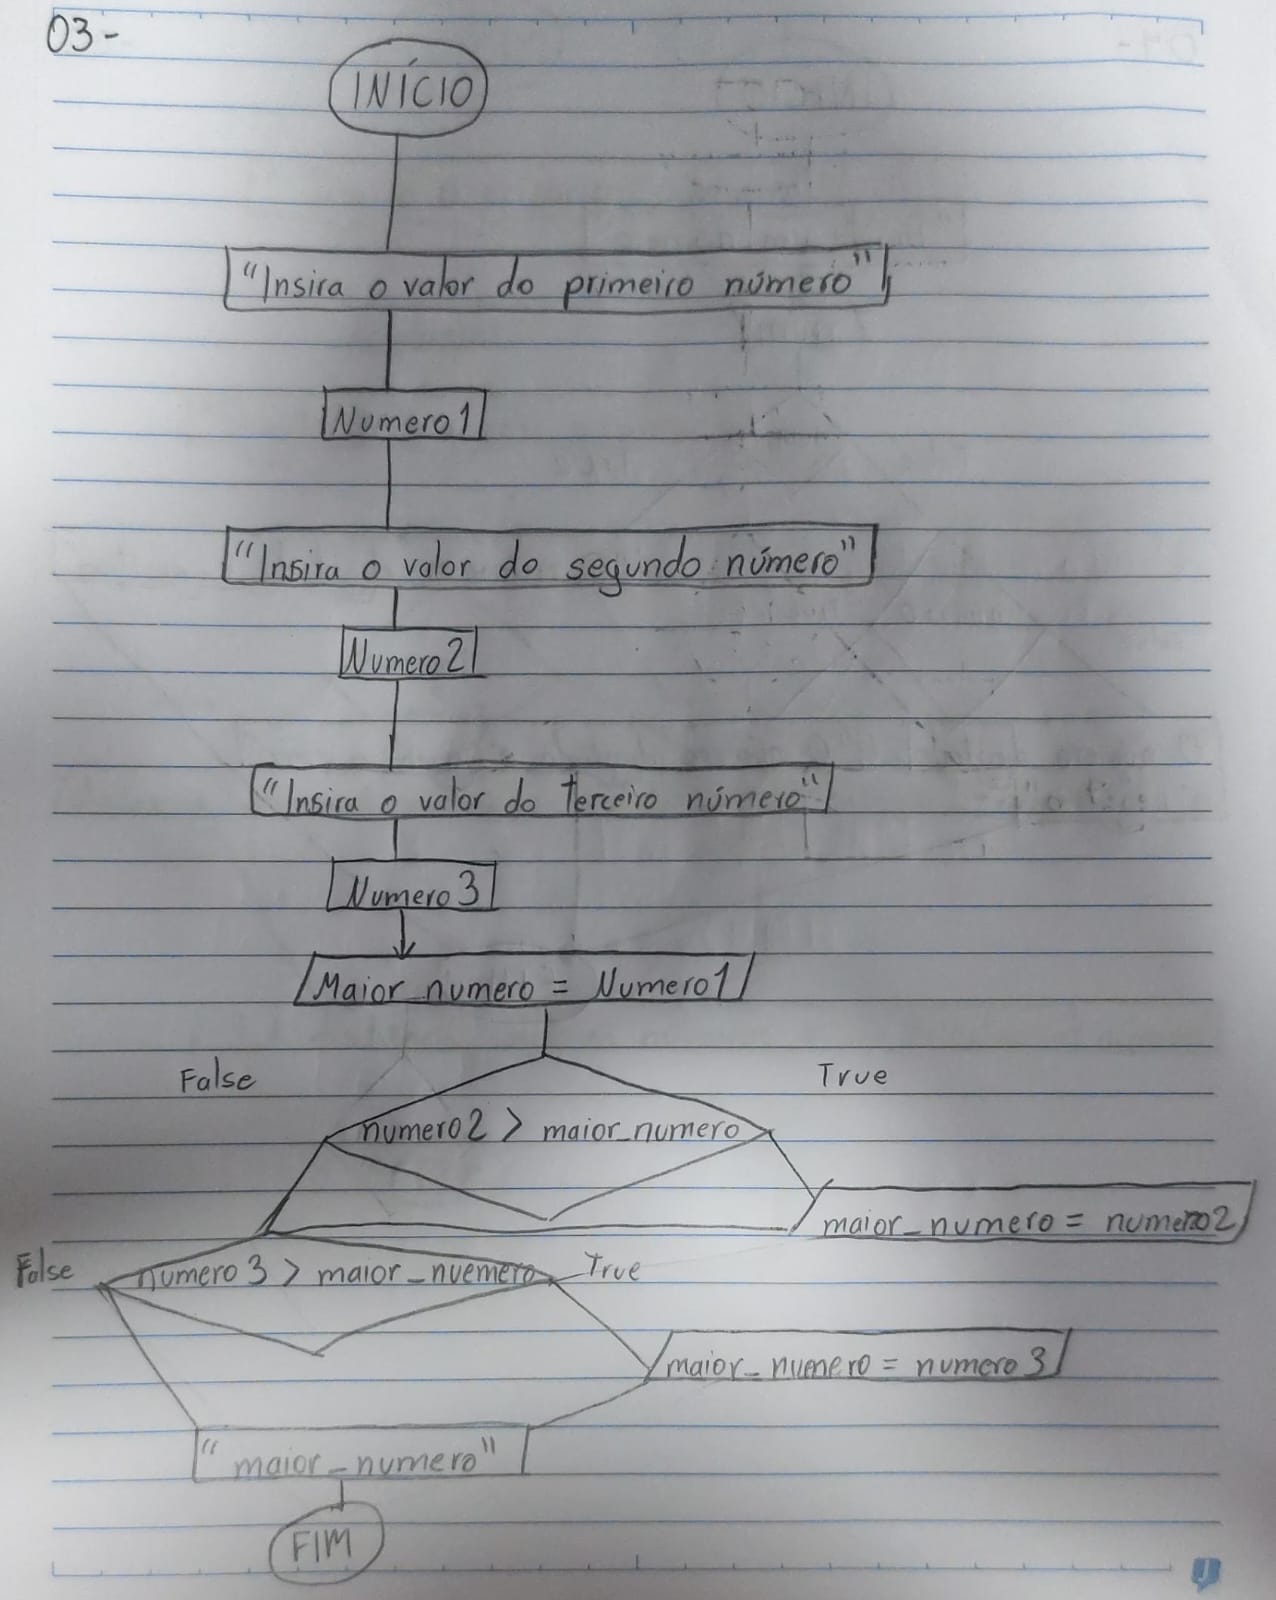 03-
INÍCIO
"Insira o valor do primeiro número"
Numero1
"Insira o valor do segundo número"
Numero2
"Insira o valor do terceiro número"
Numero3
Maior_numero = Numero1
False
True
numero2 > maior_numero
maior_numero = numero2
False
numero3 > maior_nuemero
True
maior_numero = numero3
"maior_numero"
FIM